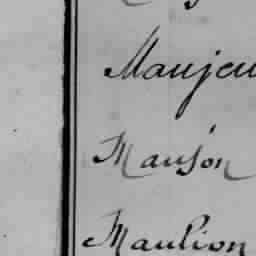 Maujeu
Mauson
Maulion